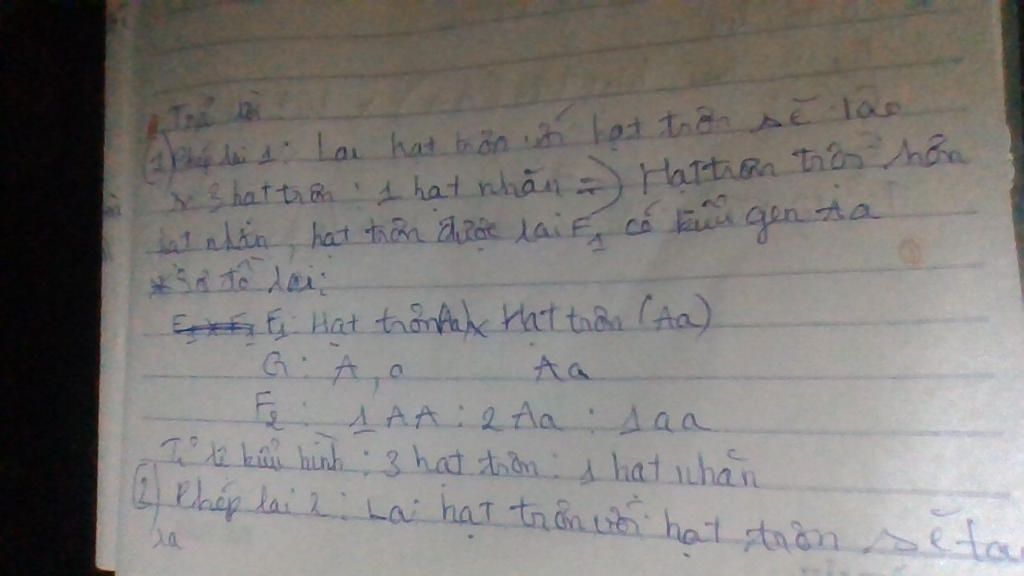 Trả lời
(1) Phép lai 1: Lai hạt trơn với hạt trơn sẽ
ra 3 hạt trơn : 1 hạt nhăn => Hạt trơn trội hơn
hạt nhăn, hạt trơn được lai F1 có kiểu gen Aa
*Sơ đồ lai:
F1: Hạt trơn(Aa)x Hạt trơn (Aa)
G: A, a Aa
F2: 1AA : 2Aa : 1aa
Tỉ lệ kiểu hình: 3 hạt trơn : 1 hạt nhăn
(2) Phép lai 2: Lai hạt trơn với hạt trơn sẽ
ra